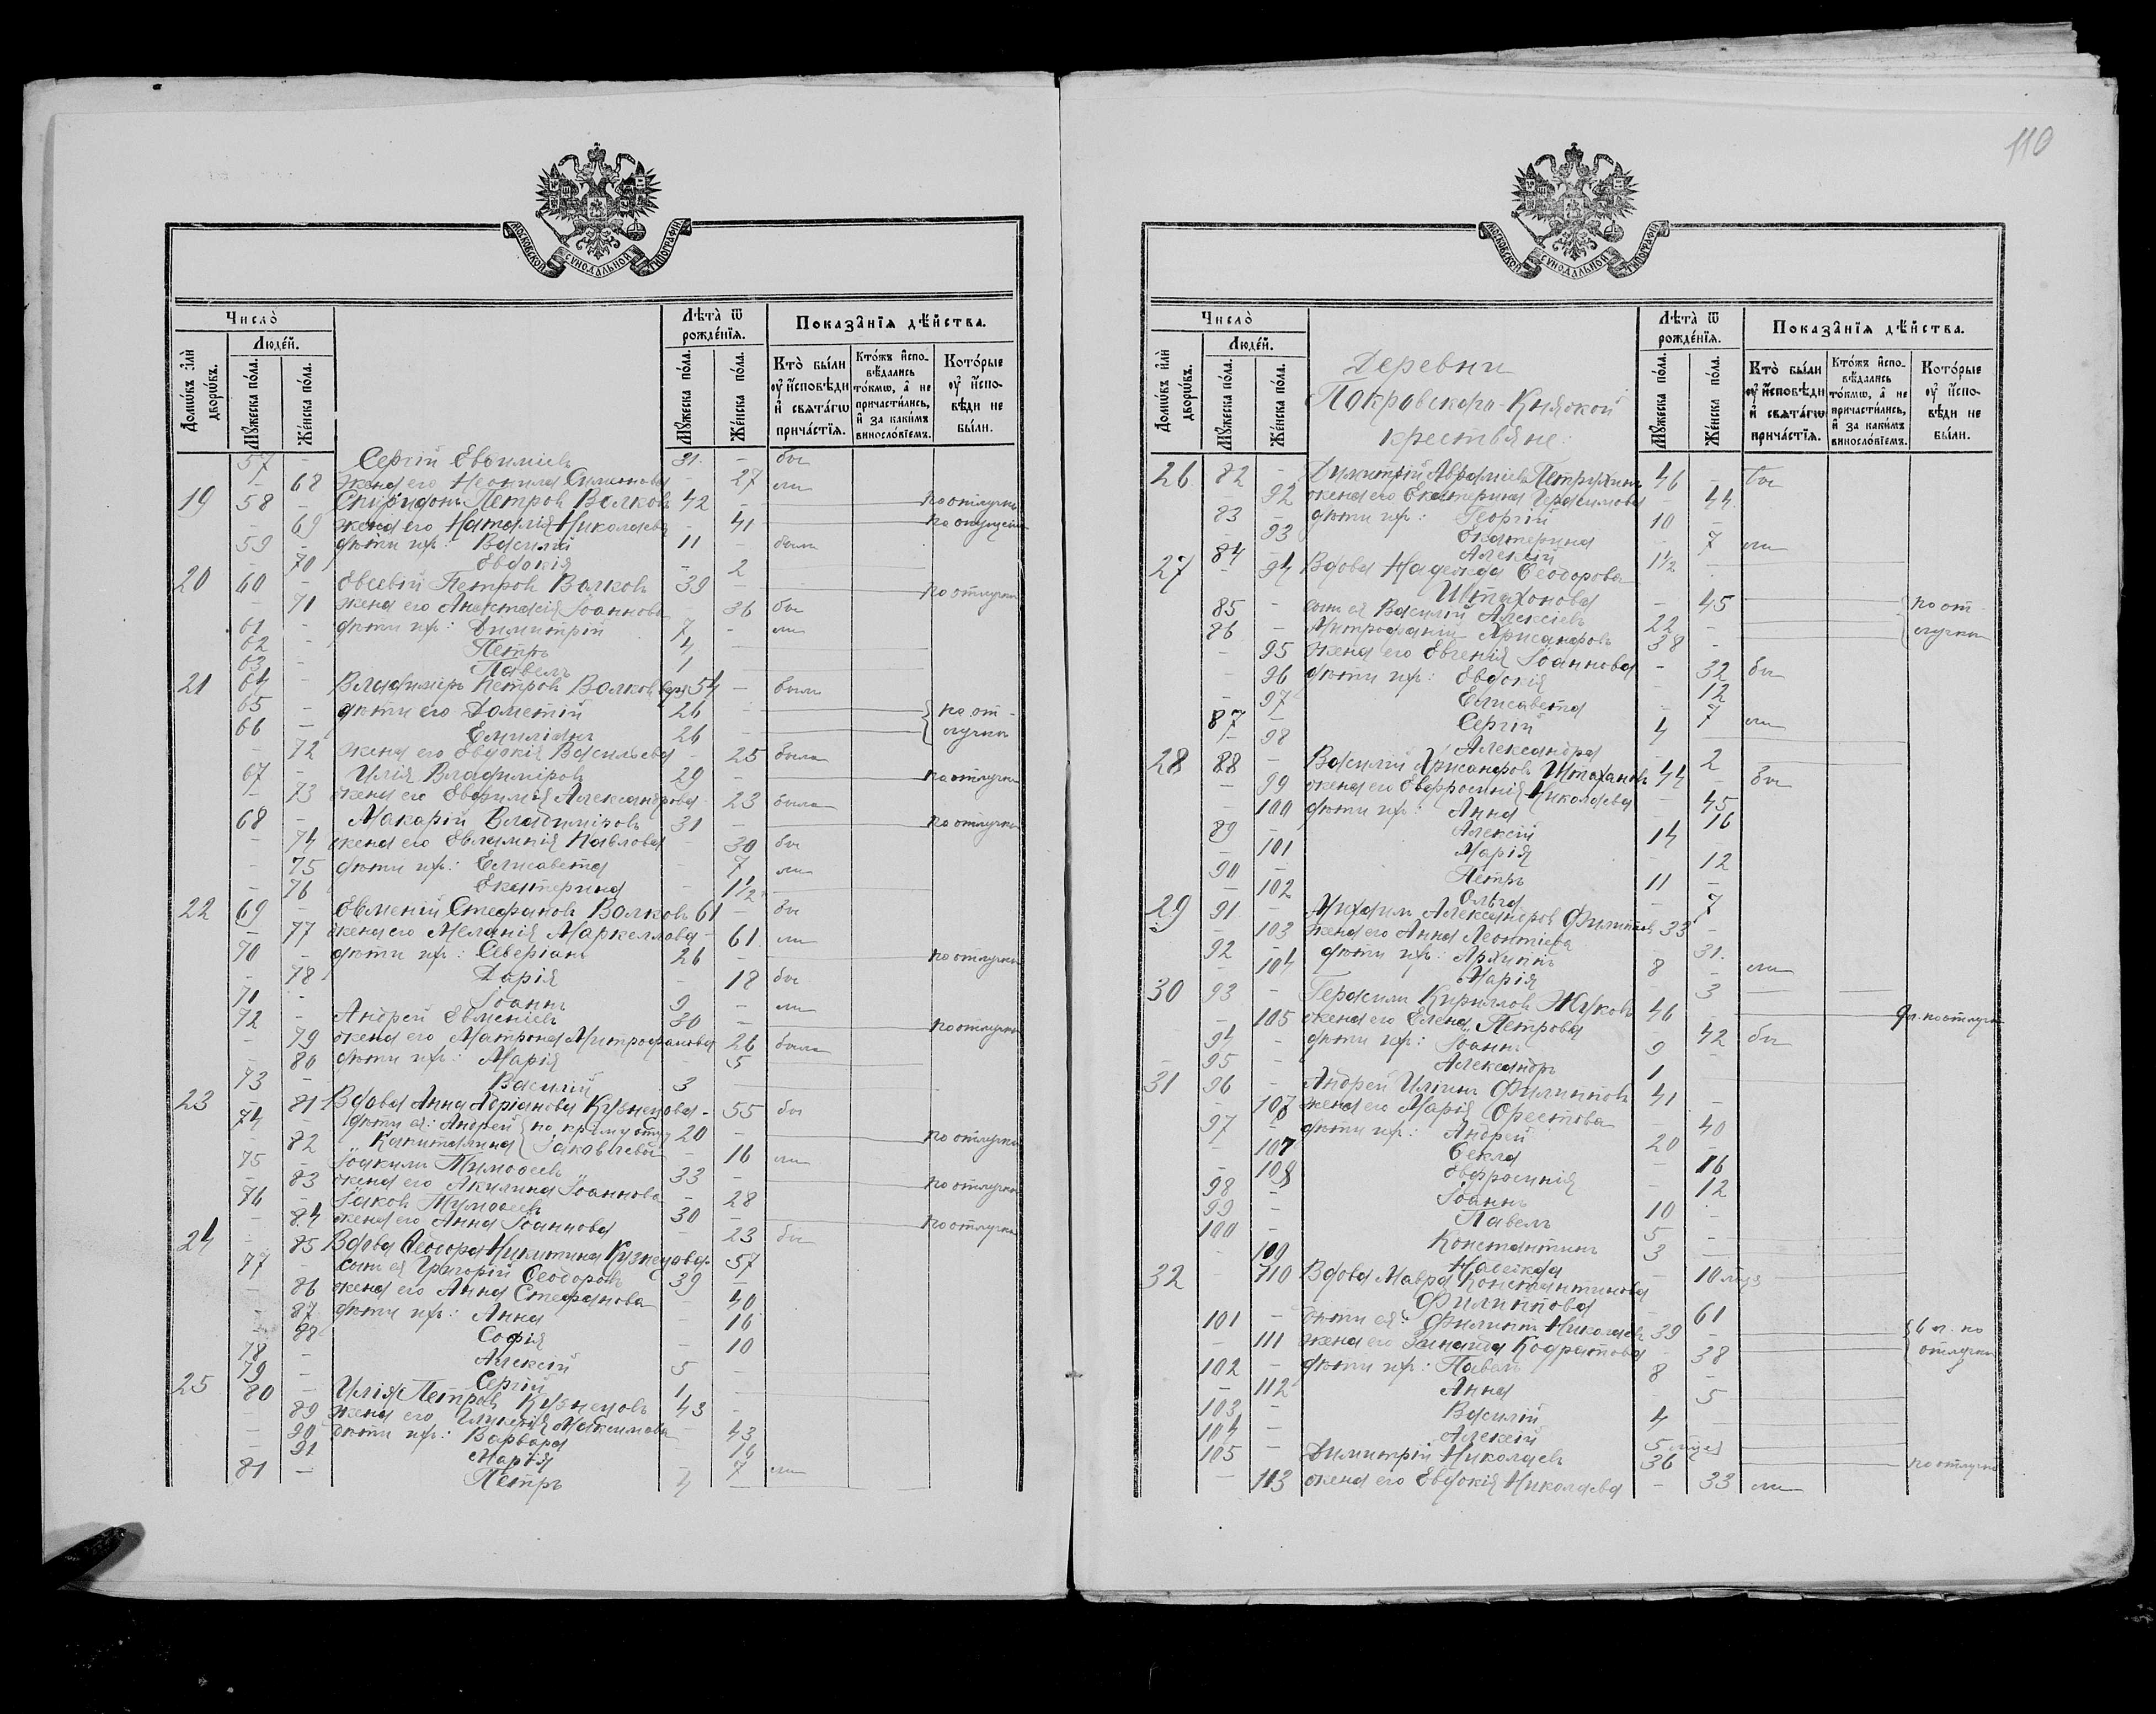 110
МОСКОВСКОЙ СУНОДАЛЬНОЙ ТИПОГРАФІИ
Число̀
Людѐй.
Домѡ́въ и҆лѝ дворѡ́въ.
Мꙋ́жеска по́ла.
Же́нска по́ла.
Лѣ́та ѿ рожде́нїѧ.
Мꙋ́жеска по́ла.
Же́нска по́ла.
Показа̑нїѧ дѣ́йства.
Кто̀ бы́ли ᲂу҆ и҆сповѣ́ди и҆ свята́гѡ прича́стїѧ.
Кто́жъ и҆сповѣ́дались то́кмѡ, а҆ не причасти́лись, и҆ за каки́мъ винослόвїемъ.
Кото́рые ᲂу҆ и҆сповѣ́ди не бы́ли.
57 - Сергій Евѳиміевъ 31 - бы
- 68 жена его Неонила Симеонова - 27 ли
19 58 - Спиридонъ Петровъ Волковъ 42 - по отлучкѣ
- 69 жена его Наталія Николаева - 41
59 - дѣти ихъ: Василій 11 - были
- 70 Евдокія - 2
20 60 - Евсевій Петровъ Волковъ 39 - по отлучкѣ
- 71 жена его Анастасія Іоаннова - 36 бы
61 - дѣти ихъ: Димитрій 7 - ли
62 - Петръ 4
63 - Павелъ 1
21 64 - Владиміръ Петровъ Волковъ вдов 54 - были
65 - дѣти его Дометій 26 - по от-
66 - Емиліанъ 26 - лучкѣ
- 72 жена его Евдокія Васильева - 25 была
67 - Илія Владиміровъ 29 - по отлучкѣ
- 73 жена его Евфимія Александрова - 23 была
68 - Макарій Владиміровъ 31 - по отлучкѣ
- 74 жена его Евлампія Павлова - 30 бы
- 75 дѣти ихъ: Елисавета - 7 ли
- 76 Екатерина - 1 1/2
22 69 - Евменій Стефановъ Волковъ 61 - бы
- 77 жена его Меланія Маркеллова - 61 ли
70 - дѣти ихъ: Северіанъ 26 - по отлучкѣ
- 78 Дарія - 18 бы
71 - Іоаннъ 9 - ли
72 - Андрей Евменіевъ 30 - по отлучкѣ
- 79 жена его Матрона Митрофанова 26 были
- 80 дѣти ихъ: Марія 5
73 - Василій 3
23 - 81 Вдова Анна Адріанова Кузнецова - 55 бы
74 - дѣти ея: Андрей по крему отцу 20 - по отлучкѣ
- 82 Капитолина Іаковлевы - 16 ли
75 - Іоакимъ Тимоѳеевъ 33 - по отлучкѣ
- 83 жена его Акилина Іоаннова - 28
76 - Іаковъ Тимоѳеевъ 30 - по отлучкѣ
- 84 жена его Анна Іоаннова - 23 бы
24 - 85 Вдова Ѳеодора Никитина Кузнецова - 57
77 - сынъ ея Григорій Ѳеодоровъ 39 -
- 86 жена его Анна Стефанова - 40
- 87 дѣти ихъ: Анна - 16
- 88 Софія - 10
78 - Алексій 5 -
79 - Сергій 1 -
25 80 - Илія Петровъ Кузнецовъ 43 -
- 89 жена его Гликерія Максимова - 43
- 90 дѣти ихъ: Варвара - 16
- 91 Марія - 7 ли
81 - Петръ 4 -
МОСКОВСКОЙ СУНОДАЛЬНОЙ ТИПОГРАФІИ
Число̀
Людѐй.
Домѡ́въ и҆лѝ дворѡ́въ.
Мꙋ́жеска по́ла.
Же́нска по́ла.
Деревни
Покровскаго-Княжой
крестьяне:
Лѣ́та ѿ рожде́нїѧ.
Мꙋ́жеска по́ла.
Же́нска по́ла.
Показа̑нїѧ дѣ́йства.
Кто̀ бы́ли ᲂу҆ и҆сповѣ́ди и҆ свята́гѡ прича́стїѧ.
Кто́жъ и҆сповѣ́дались то́кмѡ, а҆ не причасти́лись, и҆ за каки́мъ винослόвїемъ.
Кото́рые ᲂу҆ и҆сповѣ́ди не бы́ли.
26 82 - Димитрій Авраміевъ Петрухинъ 46 - бы
- 92 жена его Екатерина Герасимова - 44
83 - дѣти ихъ: Георгій 10 -
- 93 Екатерина - 7 ли
84 - Алексій 1 1/2
27 - 94 Вдова Надежда Ѳеодорова
Штахонова - 45 по от-
85 - сынъ ея Василій Алексіевъ 22 - лучкѣ
86 - Митрофанъ Хрисанфовъ 38 -
- 95 жена его Евгенія Іоаннова - 32 бы
- 96 дѣти ихъ: Евдокія - 12
- 97 Елисавета - 7 ли
87 - Сергій 4
- 98 Александра - 2
28 88 - Василій Хрисанфовъ Штахановъ 44 - бы
- 99 жена его Евфросинія Николаева - 45
- 100 дѣти ихъ: Анна - 16
89 - Алексій 14 -
- 101 Марія - 12
90 - Петръ 11 -
- 102 Ольга - 7
29 91 - Михаилъ Александровъ Филипповъ 33 -
- 103 жена его Анна Леонтіева - 31
92 - дѣти ихъ: Архиппъ 8 - ли
- 104 Марія - 3
30 93 - Герасимъ Кирилловъ Жуковъ 46 - по отлучкѣ
- 105 жена его Елена Петрова - 42 бы
94 - дѣти ихъ: Іоаннъ 9 -
95 - Александръ 1
31 96 - Андрей Илiинъ Филипповъ 41 -
- 107 жена его Марія Орестова - 40
97 - дѣти ихъ: Андрей 20 -
- 107 Ѳекла - 16
- 108 Евфросинія - 12
98 - Іоаннъ 10 -
99 - Павелъ 5 -
100 - Константинъ 3
- 109 Надежда - 10 мцз
32 - 110 Вдова Мавра Константинова
Филиппова - 61
101 - дѣти ея: Филиппъ Николаевъ 39 - по
- 111 жена его Зинаида Кодратова - 38 отлучкѣ
102 - дѣти ихъ: Павелъ 8 -
- 112 Анна - 5
103 - Василій 4
104 - Алексій 5 мцев
105 - Димитрій Николаевъ 36 - по отлучкѣ
- 113 жена его Евдокія Николаева - 33 ли